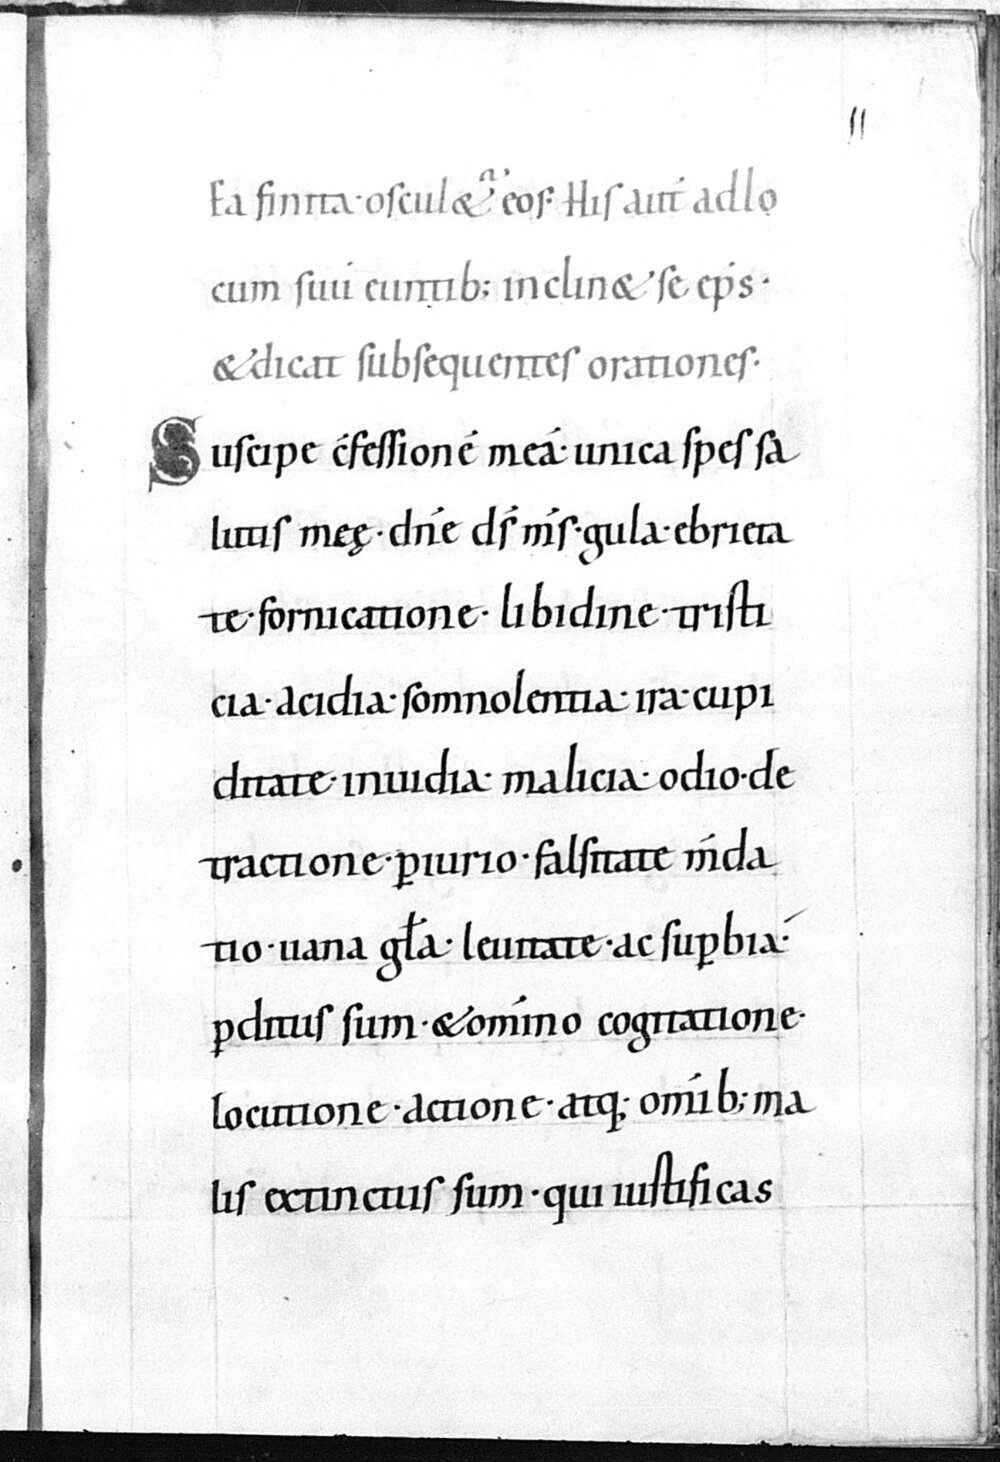 11
Ea finita· oscul& eos· His aut́ ad lo
cum suū euntib; inclin& se ep̄s·
&dicat subsequentes orationes·
Suscipe c̄fessionē meā· unica spes sa
lutis meę· dn̄e ds̄ m̄s· gula· ebrieta
te· fornicatione· libidine· tristi
cia· acidia· somnolentia· ira· cupi
ditate· inuidia· malicia· odio· de
tractione· ꝑiurio· falsitate m̄da
tio· uana gl̄a· leuitate· ac suꝑbia·
ꝑditus sum· &om̄ino cogitatione·
locutione· actione· atq; om̄ib; ma
lis extinctus sum· qui iustificas